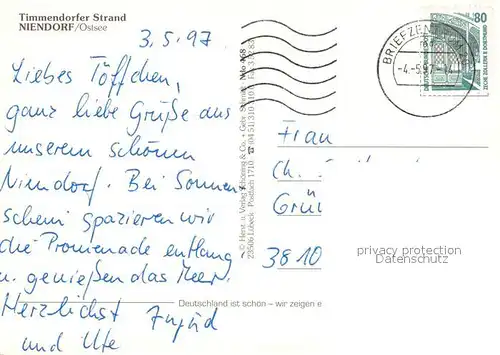 Timmendorfer Strand
NIENDORF/Ostsee
3.5.97
Liebes Töffchen,
ganz liebe Grüße aus
unserem schönen
Niendorf. Bei Sonnen
schein spazieren wir
die Promenade entlang
u. genießen das Meer.
Herzlichst Ingrid
und Ute
Deutschland ist schön – wir zeigen e
© Herst. u. Verlag Schöning & Co. + Gebr. Schmidt
23506 Lübeck Postfach 1710
BRIEFZENTRUM
-4.-5.97
80
DEUTSCHE BUNDESPOST
ZECHE ZOLLERN II DORTMUND
Frau
Ch.
Grü
3810
privacy protection
Datenschutz